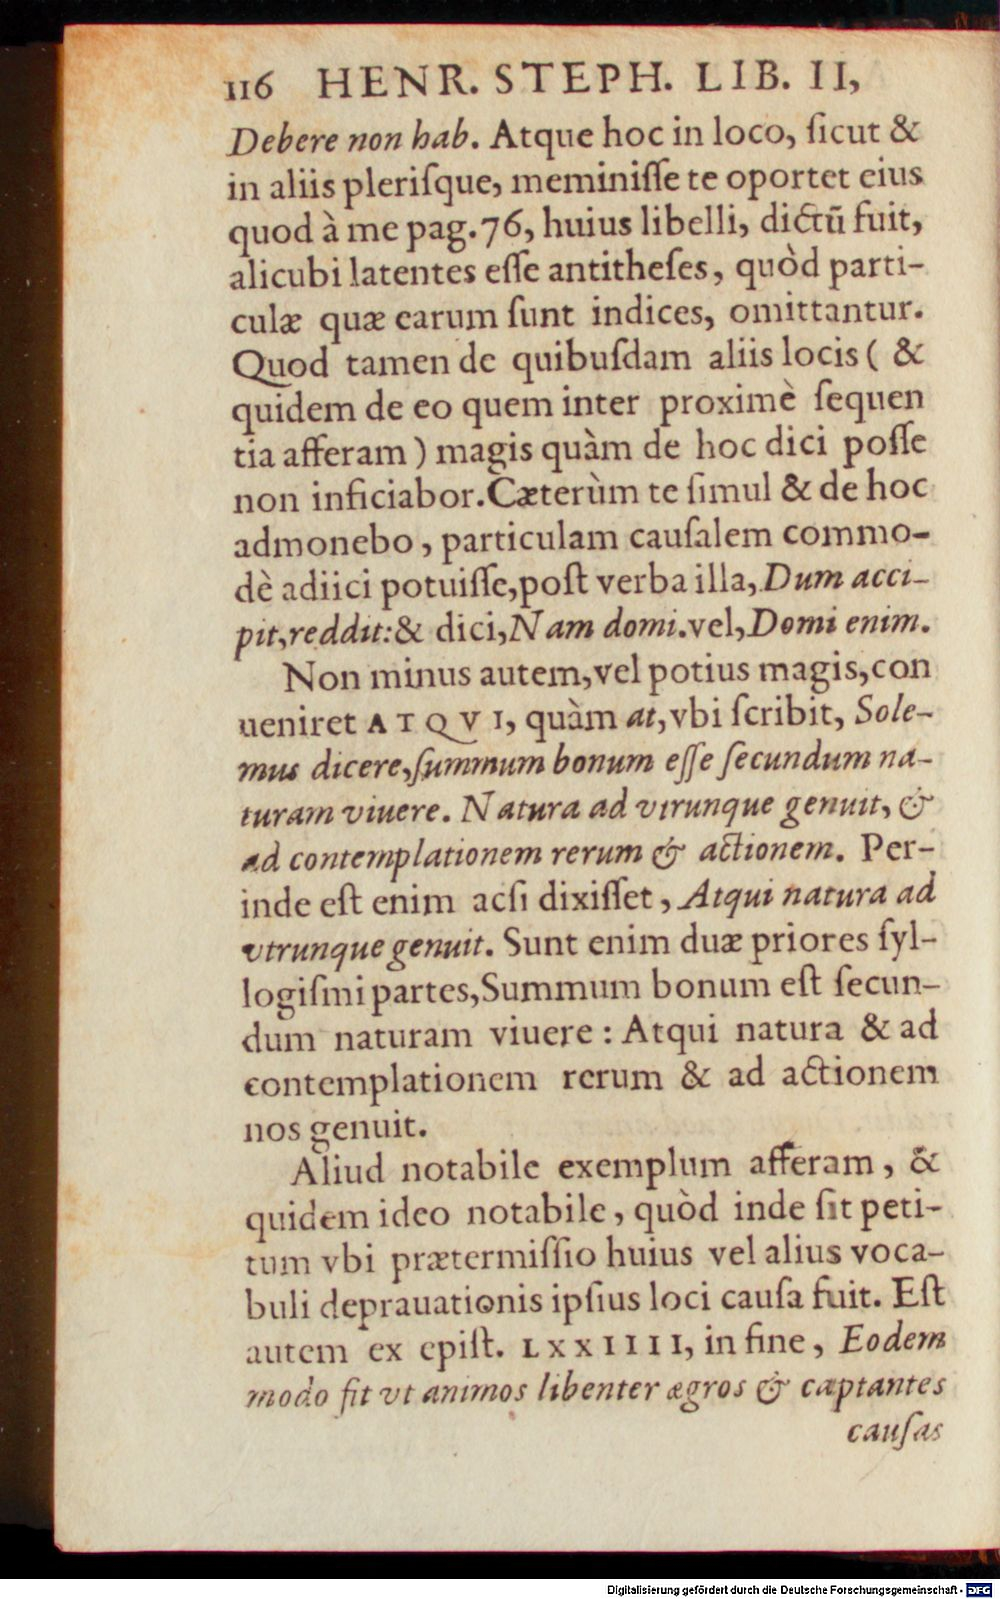 116 HENR. STEPH. LIB. II,
Debere non hab. Atque hoc in loco, ſicut &
in aliis pleriſque, meminiſſe te oportet eius
quod à me pag. 76, huius libelli, dictū fuit,
alicubi latentes eſſe antitheſes, quòd parti-
culæ quæ earum ſunt indices, omittantur.
Quod tamen de quibuſdam aliis locis ( &
quidem de eo quem inter proximè ſequen
tia afferam ) magis quàm de hoc dici poſſe
non inficiabor. Cæterùm te ſimul & de hoc
admonebo, particulam cauſalem commo-
dè adiici potuiſſe, poſt verba illa, Dum acci-
pit, reddit: & dici, Nam domi. vel, Domi enim.
Non minus autem, vel potius magis, con
ueniret ATQVI, quàm at, vbi ſcribit, Sole-
mus dicere, ſummum bonum eſſe ſecundum na-
turam viuere. Natura ad vtrunque genuit, &
ad contemplationem rerum & actionem. Per-
inde eſt enim acſi dixiſſet, Atqui natura ad
vtrunque genuit. Sunt enim duæ priores ſyl-
logiſmi partes, Summum bonum eſt ſecun-
dum naturam viuere : Atqui natura & ad
contemplationem rerum & ad actionem
nos genuit.
Aliud notabile exemplum afferam, &
quidem ideo notabile, quòd inde ſit peti-
tum vbi prætermiſſio huius vel alius voca-
buli deprauationis ipſius loci cauſa fuit. Eſt
autem ex epiſt. LXXIIII, in fine, Eodem
modo fit vt animos libenter ægros & captantes
cauſas
Digitalisierung gefördert durch die Deutsche Forschungsgemeinschaft - DFG